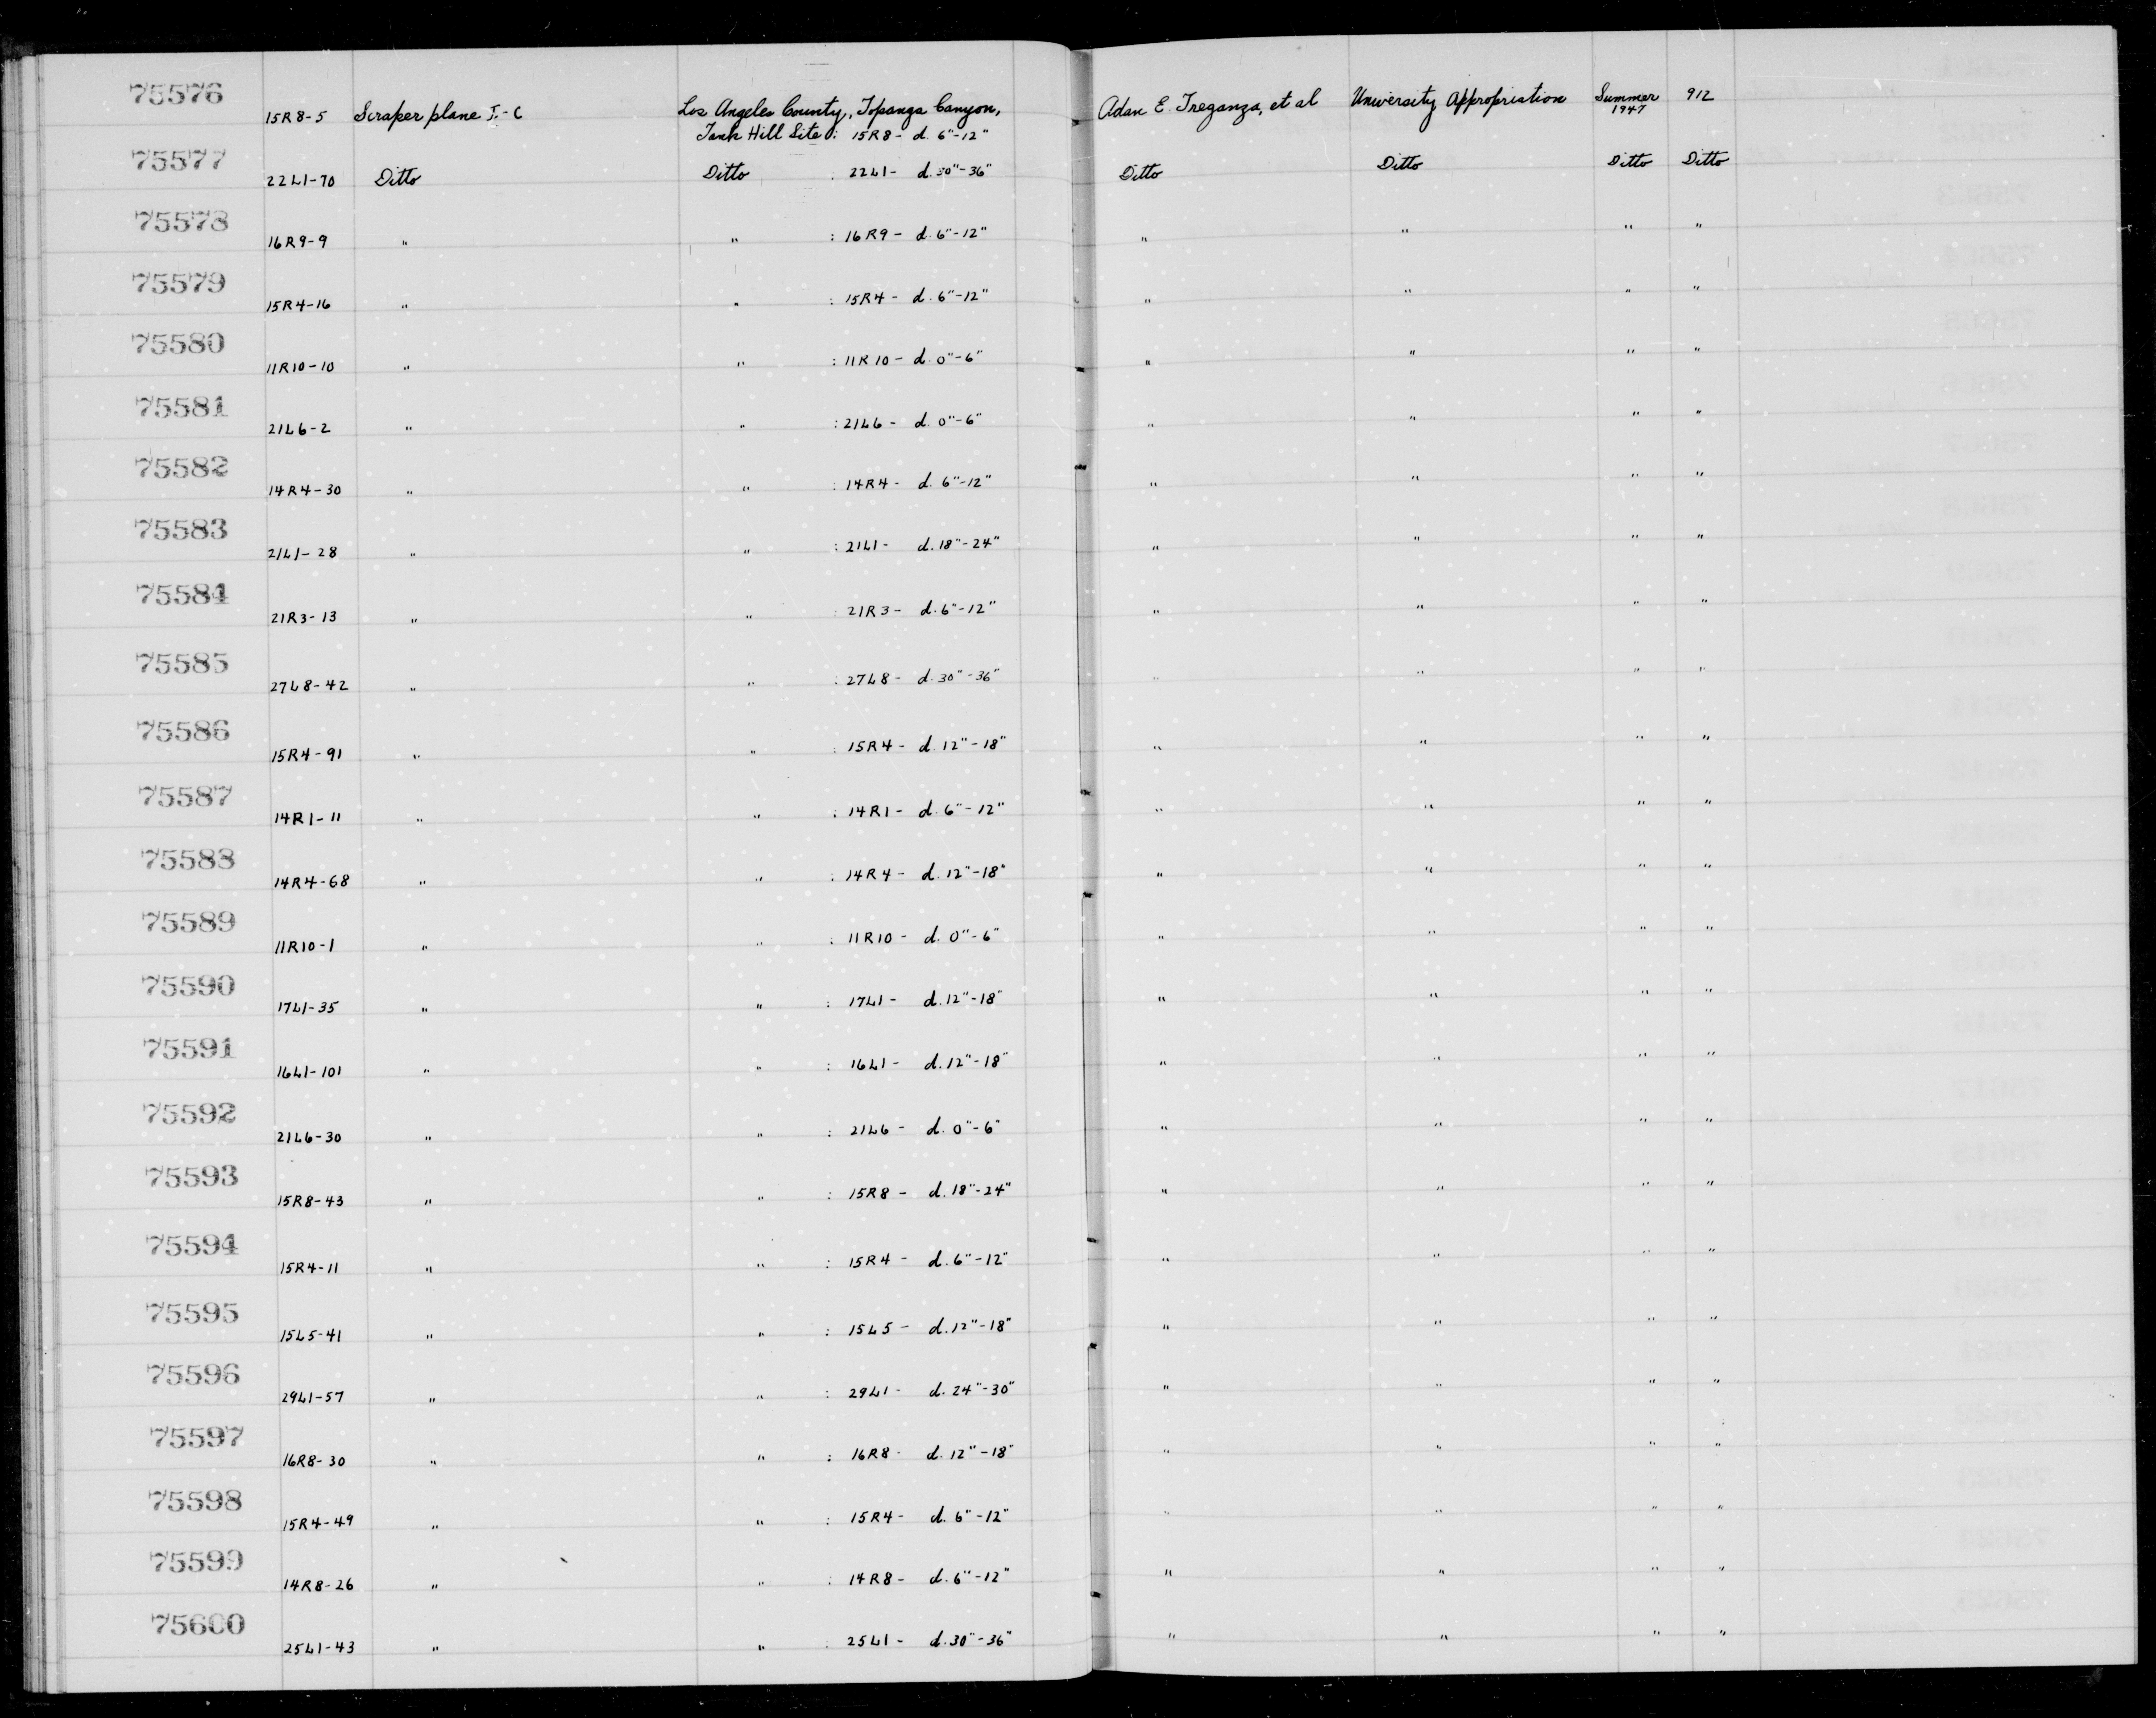 75576 15R8-5 Scraper plane I.-C Los Angeles County, Topanga Canyon, Adan E. Treganza, et al University Appropriation Summer 912
Tank Hill Site: 15R8- d. 6"-12" 1947
75577 22L1-70 Ditto Ditto : 22L1- d. 30"-36" Ditto Ditto Ditto Ditto
75578 16R9-9 " " : 16R9- d. 6"-12" " " " "
75579 15R4-16 " " : 15R4- d. 6"-12" " " " "
75580 11R10-10 " " : 11R10- d. 0"-6" " " " "
75581 21L6-2 " " : 21L6- d. 0"-6" " " " "
75582 14R4-30 " " : 14R4- d. 6"-12" " " " "
75583 21L1-28 " " : 21L1- d. 18"-24" " " " "
75584 21R3-13 " " : 21R3- d. 6"-12" " " " "
75585 27L8-42 " " : 27L8- d. 30"-36" " " " "
75586 15R4-91 " " : 15R4- d. 12"-18" " " " "
75587 14R1-11 " " : 14R1- d. 6"-12" " " " "
75588 14R4-68 " " : 14R4- d. 12"-18" " " " "
75589 11R10-1 " " : 11R10- d. 0"-6" " " " "
75590 17L1-35 " " : 17L1- d. 12"-18" " " " "
75591 16L1-101 " " : 16L1- d. 12"-18" " " " "
75592 21L6-30 " " : 21L6- d. 0"-6" " " " "
75593 15R8-43 " " : 15R8- d. 18"-24" " " " "
75594 15R4-11 " " : 15R4- d. 6"-12" " " " "
75595 15L5-41 " " : 15L5- d. 12"-18" " " " "
75596 29L1-57 " " : 29L1- d. 24"-30" " " " "
75597 16R8-30 " " : 16R8- d. 12"-18" " " " "
75598 15R4-49 " " : 15R4- d. 6"-12" " " " "
75599 14R8-26 " " : 14R8- d. 6"-12" " " " "
75600 25L1-43 " " : 25L1- d. 30"-36" " " " "